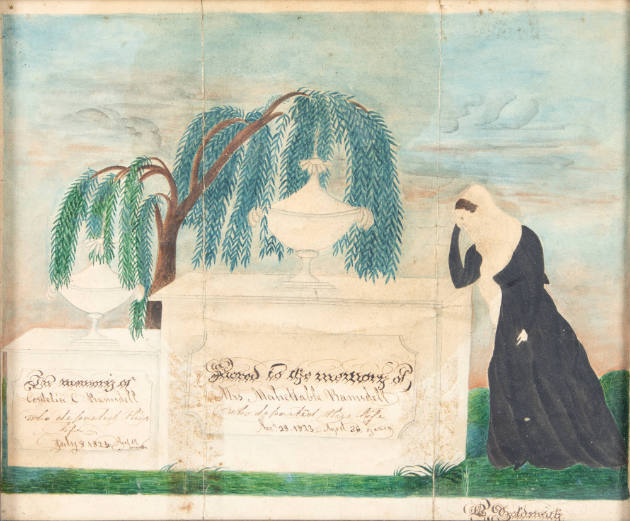 In memory of
Cordelia C Ramsdell
who departed this
life
July 8 1823
Sacred to the memory of
Mrs Mahittable Ramsdell
who departed this life
Nov 28 1823 Aged 26 years